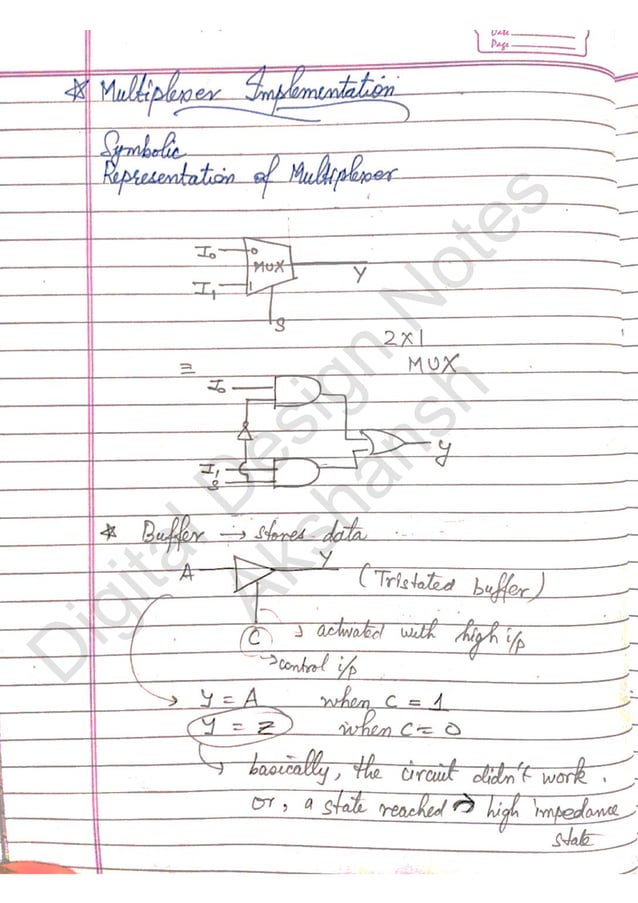 Date
Page
* Multiplexer Implementation
Symbolic
Representation of Multiplexer
I0
0
MUX
Y
I1
1
S
2x1
MUX
≡
I0
I1
S
Y
* Buffer → stores data
A
Y
(Tristated buffer)
C
→ activated with high i/p
→ control i/p
→ Y = A when C = 1
Y = Z when C = 0
→ basically, the circuit didn't work.
or, a state reached → high impedance
state
Digital Design Notes
Akshansh